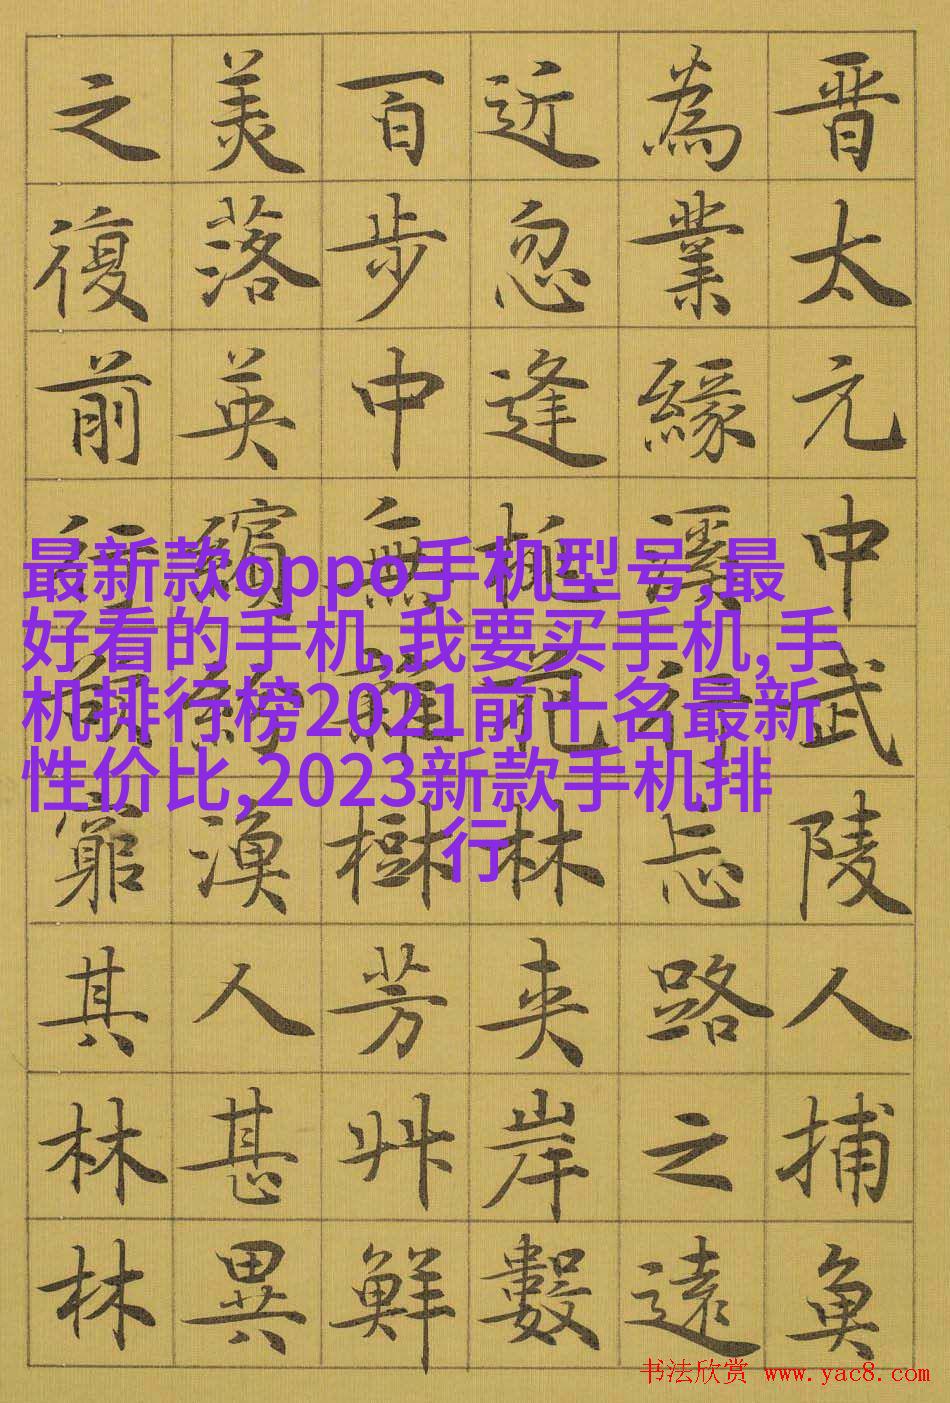 晋太元中武陵人捕魚
為業緣溪行忘路之遠
近忽逢桃花林夾岸數
百步中無雜樹芳艸鮮
美落英繽紛漁人甚異
之復前行欲窮其林林
最新款oppo手机型号,最
好看的手机,我要买手机,手
机排行榜2021前十名最新
性价比,2023新款手机排
行
书法欣赏 www.yac8.com